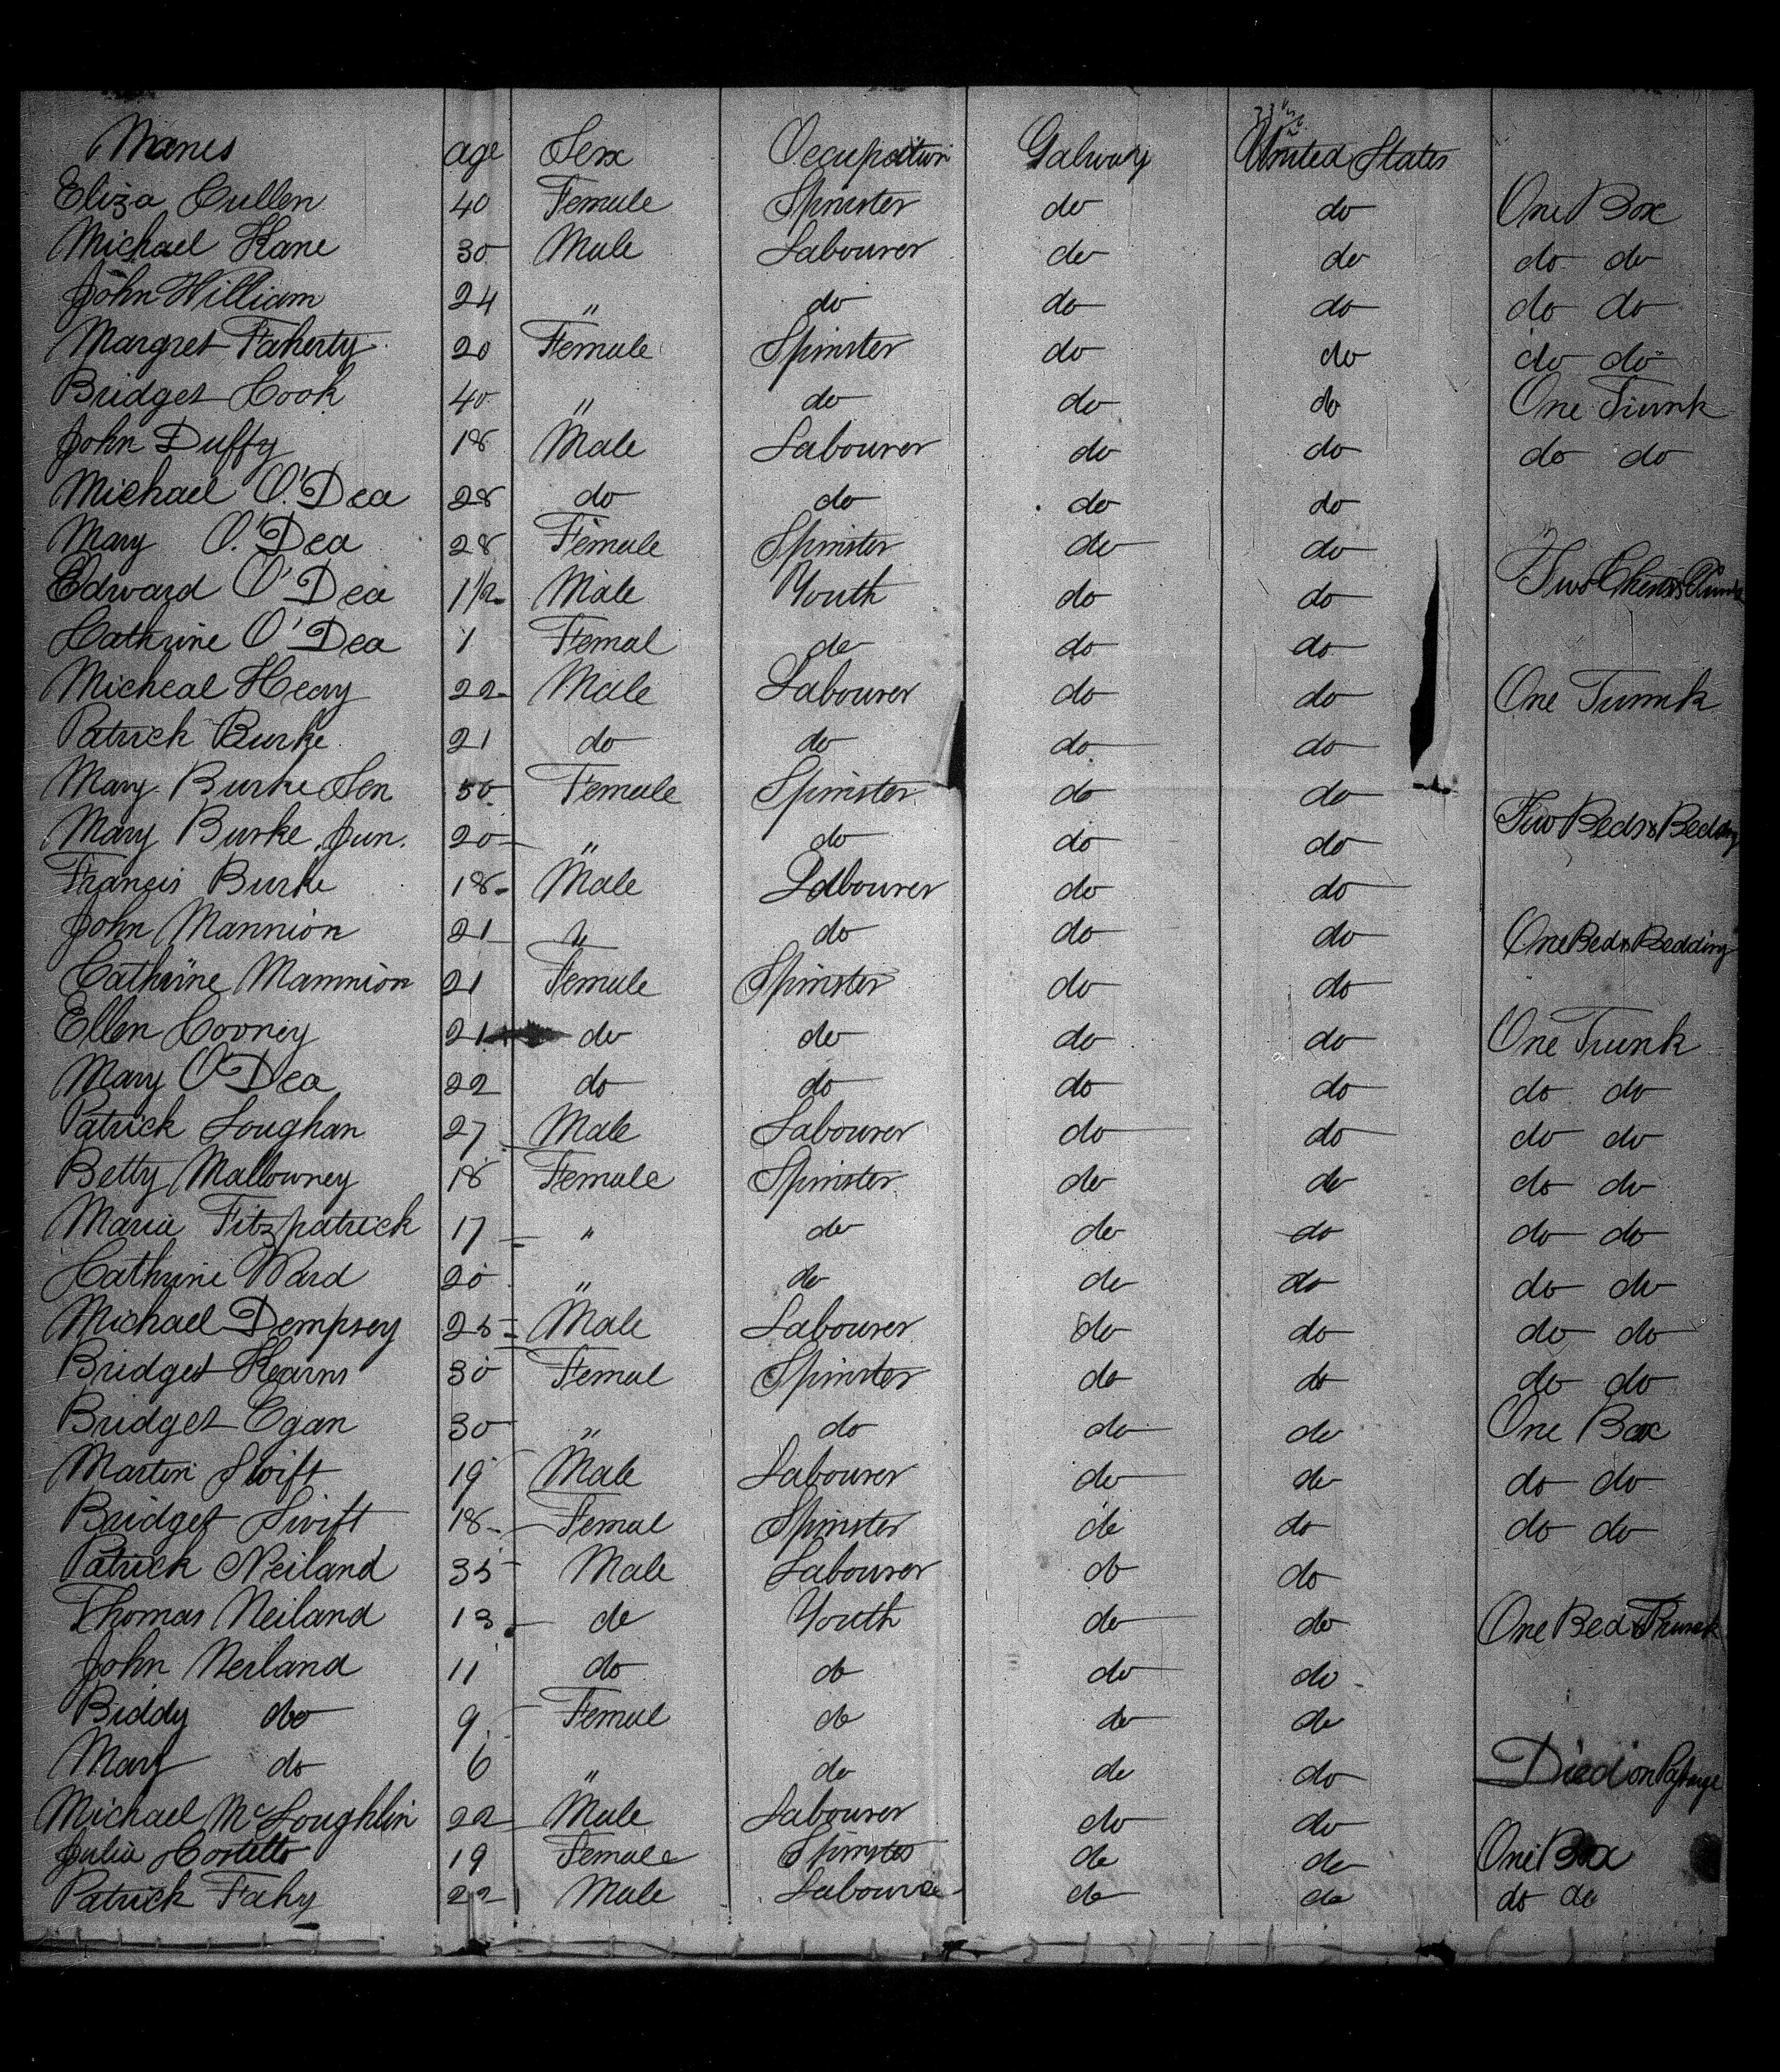 Names age Sex Occupation Galway United States
Eliza Cullen 40 Female Spinster do do One Box
Michael Kane 30 Male Labourer do do do do
John William 24 " do do do do do
Margret Faherty 20 Female Spinster do do do do
Bridget Cook 40 " do do do One Trunk
John Duffy 18 Male Labourer do do do do
Michael O'Dea 28 do do do do
Mary O'Dea 28 Female Spinster do do
Edward O'Dea 1 1/2 Male Youth do do Two Chests &
Cathrine O'Dea 1 Femal do do do
Micheal Heavy 22 Male Labourer do do One Trunk
Patrick Burke 21 do do do do
Mary Burke Sen 50 Female Spinster do do
Mary Burke Jun. 20 " do do do Two Beds & Bedding
Francis Burke 18 Male Labourer do do
John Mannion 21 " do do do One Bed & Bedding
Cathrine Mannion 21 Female Spinster do do
Ellen Cooney 21 do do do do One Trunk
Mary O'Dea 22 do do do do do do
Patrick Loughan 27 Male Labourer do do do do
Betty Mallowney 18 Female Spinster do do do do
Maria Fitzpatrick 17 " do do do do do
Cathrine Ward 20 " do do do do do
Michael Dempsey 25 Male Labourer do do do do
Bridget Kearns 30 Femal Spinster do do do do
Bridget Egan 30 " do do do One Box
Martin Swift 19 Male Labourer do do do do
Bridget Swift 18 Femal Spinster do do do do
Patrick Neiland 35 Male Labourer do do
Thomas Neiland 13 do Youth do do One Bed & Trunk
John Neiland 11 do do do do
Biddy do 9 Femal do do do
Mary do 6 " do do do Died on Passage
Michael McLoughlin 22 Male Labourer do do
Julia Costello 19 Female Spinster do do One Box
Patrick Fahy 22 Male Labourer do do do do